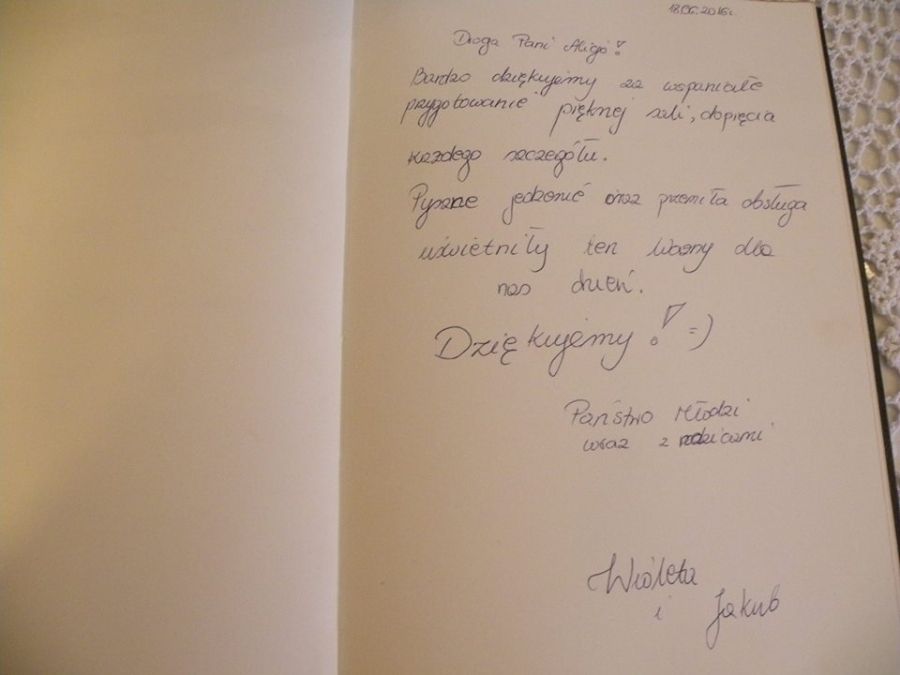 18.06.2016r.
Droga Pani Alicjo!
Bardzo dziękujemy za wspaniałe
przygotowanie pięknej sali, dopięcia
każdego szczegółu.
Pyszne jedzenie oraz przemiła obsługa
uświetniły ten ważny dla
nas dzień.
Dziękujemy! =)
Państwo Młodzi
wraz z rodzicami
Wioleta
i Jakub